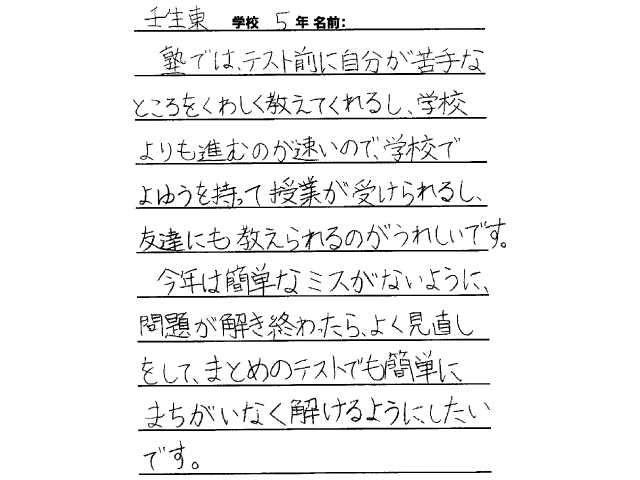 壬生東 学校 5 年 名前:
塾では、テスト前に自分が苦手な
ところをくわしく教えてくれるし、学校
よりも進むのが速いので、学校で
よゆうを持って授業が受けられるし、
友達にも教えられるのがうれしいです。
今年は簡単なミスがないように、
問題が解き終わったら、よく見直し
をして、まとめのテストでも簡単に
まちがいなく解けるようにしたい
です。